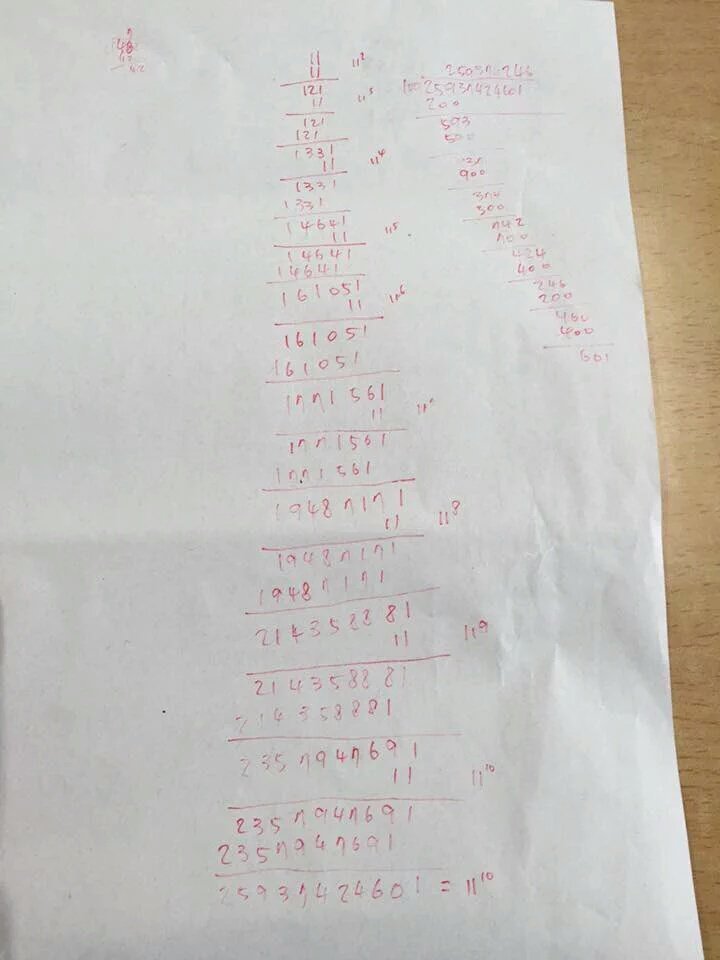 11
11 11²
121
11 11³
121
121
1331
11 11⁴
1331
1331
14641
11 11⁵
14641
14641
161051
11 11⁶
161051
161051
1771561
11 11⁷
1771561
1771561
19487171
11 11⁸
19487171
19487171
214358881
11 11⁹
214358881
214358881
2357947691
11 11¹⁰
2357947691
2357947691
25937424601 = 11¹⁰
259370246
100 25937424601
200
593
500
900
374
300
742
700
424
400
246
200
460
400
601